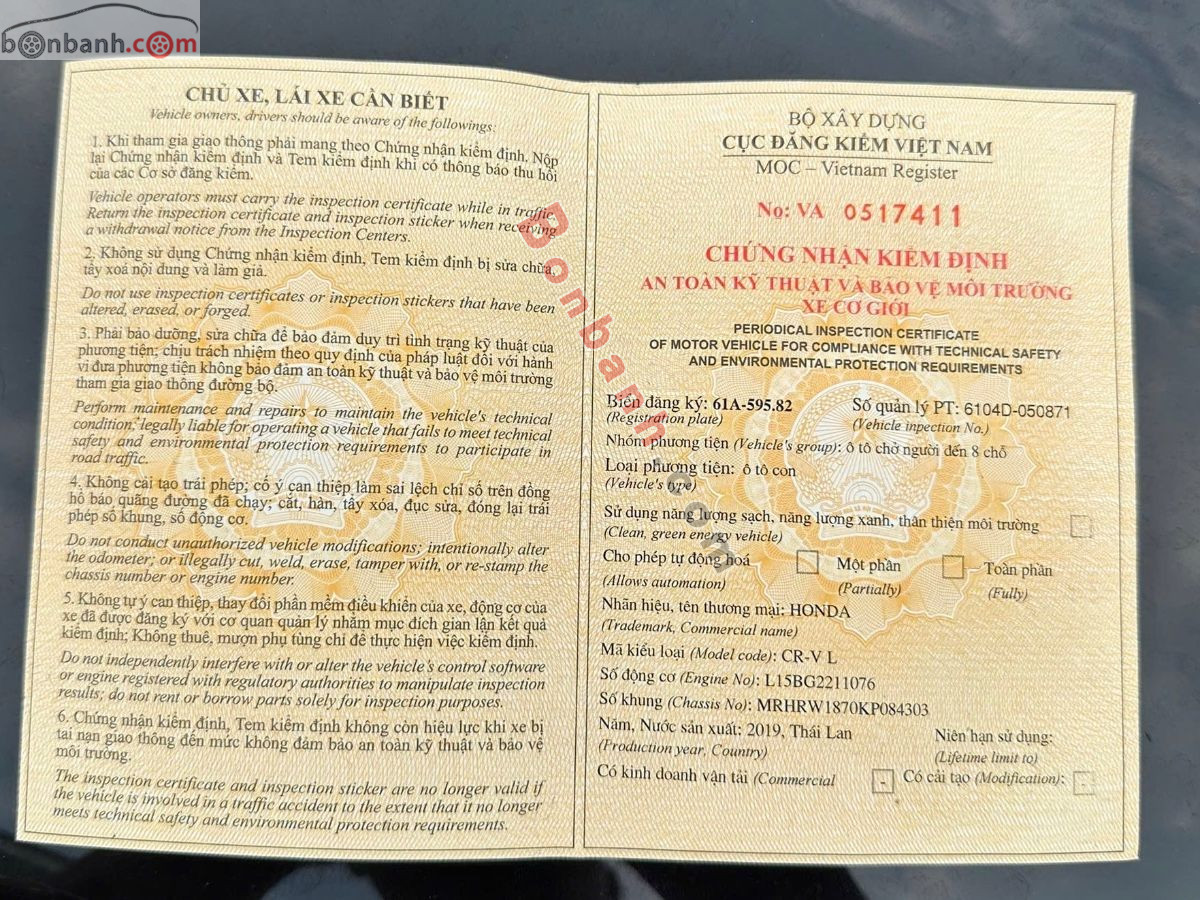 bonbanh.com
CHỦ XE, LÁI XE CẦN BIẾT
Vehicle owners, drivers should be aware of the followings:
1. Khi tham gia giao thông phải mang theo Chứng nhận kiểm định. Nộp
lại Chứng nhận kiểm định và Tem kiểm định khi có thông báo thu hồi
của các Cơ sở đăng kiểm.
Vehicle operators must carry the inspection certificate while in traffic.
Return the inspection certificate and inspection sticker when receiving
a withdrawal notice from the Inspection Centers.
2. Không sử dụng Chứng nhận kiểm định, Tem kiểm định bị sửa chữa,
tẩy xoá nội dung và làm giả.
Do not use inspection certificates or inspection stickers that have been
altered, erased, or forged.
3. Phải bảo dưỡng, sửa chữa để bảo đảm duy trì tình trạng kỹ thuật của
phương tiện; chịu trách nhiệm theo quy định của pháp luật đối với hành
vi đưa phương tiện không bảo đảm an toàn kỹ thuật và bảo vệ môi trường
tham gia giao thông đường bộ.
Perform maintenance and repairs to maintain the vehicle's technical
condition; legally liable for operating a vehicle that fails to meet technical
safety and environmental protection requirements to participate in
road traffic.
4. Không cải tạo trái phép; cố ý can thiệp làm sai lệch chỉ số trên đồng
hồ báo quãng đường đã chạy; cắt, hàn, tẩy xóa, đục sửa, đóng lại trái
phép số khung, số động cơ.
Do not conduct unauthorized vehicle modifications; intentionally alter
the odometer; or illegally cut, weld, erase, tamper with, or re-stamp the
chassis number or engine number.
5. Không tự ý can thiệp, thay đổi phần mềm điều khiển của xe, động cơ của
xe đã được đăng ký với cơ quan quản lý nhằm mục đích gian lận kết quả
kiểm định; Không thuê, mượn phụ tùng chỉ để thực hiện việc kiểm định.
Do not independently interfere with or alter the vehicle's control software
or engine registered with regulatory authorities to manipulate inspection
results; do not rent or borrow parts solely for inspection purposes.
6. Chứng nhận kiểm định, Tem kiểm định không còn hiệu lực khi xe bị
tai nạn giao thông đến mức không đảm bảo an toàn kỹ thuật và bảo vệ
môi trường.
The inspection certificate and inspection sticker are no longer valid if
the vehicle is involved in a traffic accident to the extent that it no longer
meets technical safety and environmental protection requirements.
BỘ XÂY DỰNG
CỤC ĐĂNG KIỂM VIỆT NAM
MOC – Vietnam Register
No: VA 0517411
CHỨNG NHẬN KIỂM ĐỊNH
AN TOÀN KỸ THUẬT VÀ BẢO VỆ MÔI TRƯỜNG
XE CƠ GIỚI
PERIODICAL INSPECTION CERTIFICATE
OF MOTOR VEHICLE FOR COMPLIANCE WITH TECHNICAL SAFETY
AND ENVIRONMENTAL PROTECTION REQUIREMENTS
Biển đăng ký: 61A-595.82 Số quản lý PT: 6104D-050871
(Registration plate) (Vehicle inspection No.)
Nhóm phương tiện (Vehicle's group): ô tô chở người đến 8 chỗ
Loại phương tiện: ô tô con
(Vehicle's type)
Sử dụng năng lượng sạch, năng lượng xanh, thân thiện môi trường
(Clean, green energy vehicle)
Cho phép tự động hoá Một phần Toàn phần
(Allows automation) (Partially) (Fully)
Nhãn hiệu, tên thương mại: HONDA
(Trademark, Commercial name)
Mã kiểu loại (Model code): CR-V L
Số động cơ (Engine No): L15BG2211076
Số khung (Chassis No): MRHRW1870KP084303
Năm, Nước sản xuất: 2019, Thái Lan Niên hạn sử dụng:
(Production year, Country) (Lifetime limit to)
Có kinh doanh vận tải (Commercial - Có cải tạo (Modification): -
Bonbanh.com